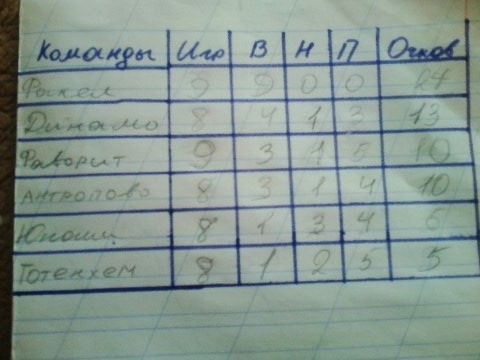 Команды Игр В Н П Очков
Факел 9 9 0 0 27
Динамо 8 4 1 3 13
Фаворит 9 3 1 5 10
Антропово 8 3 1 4 10
Юноши 8 1 3 4 6
Тотенхем 8 1 2 5 5